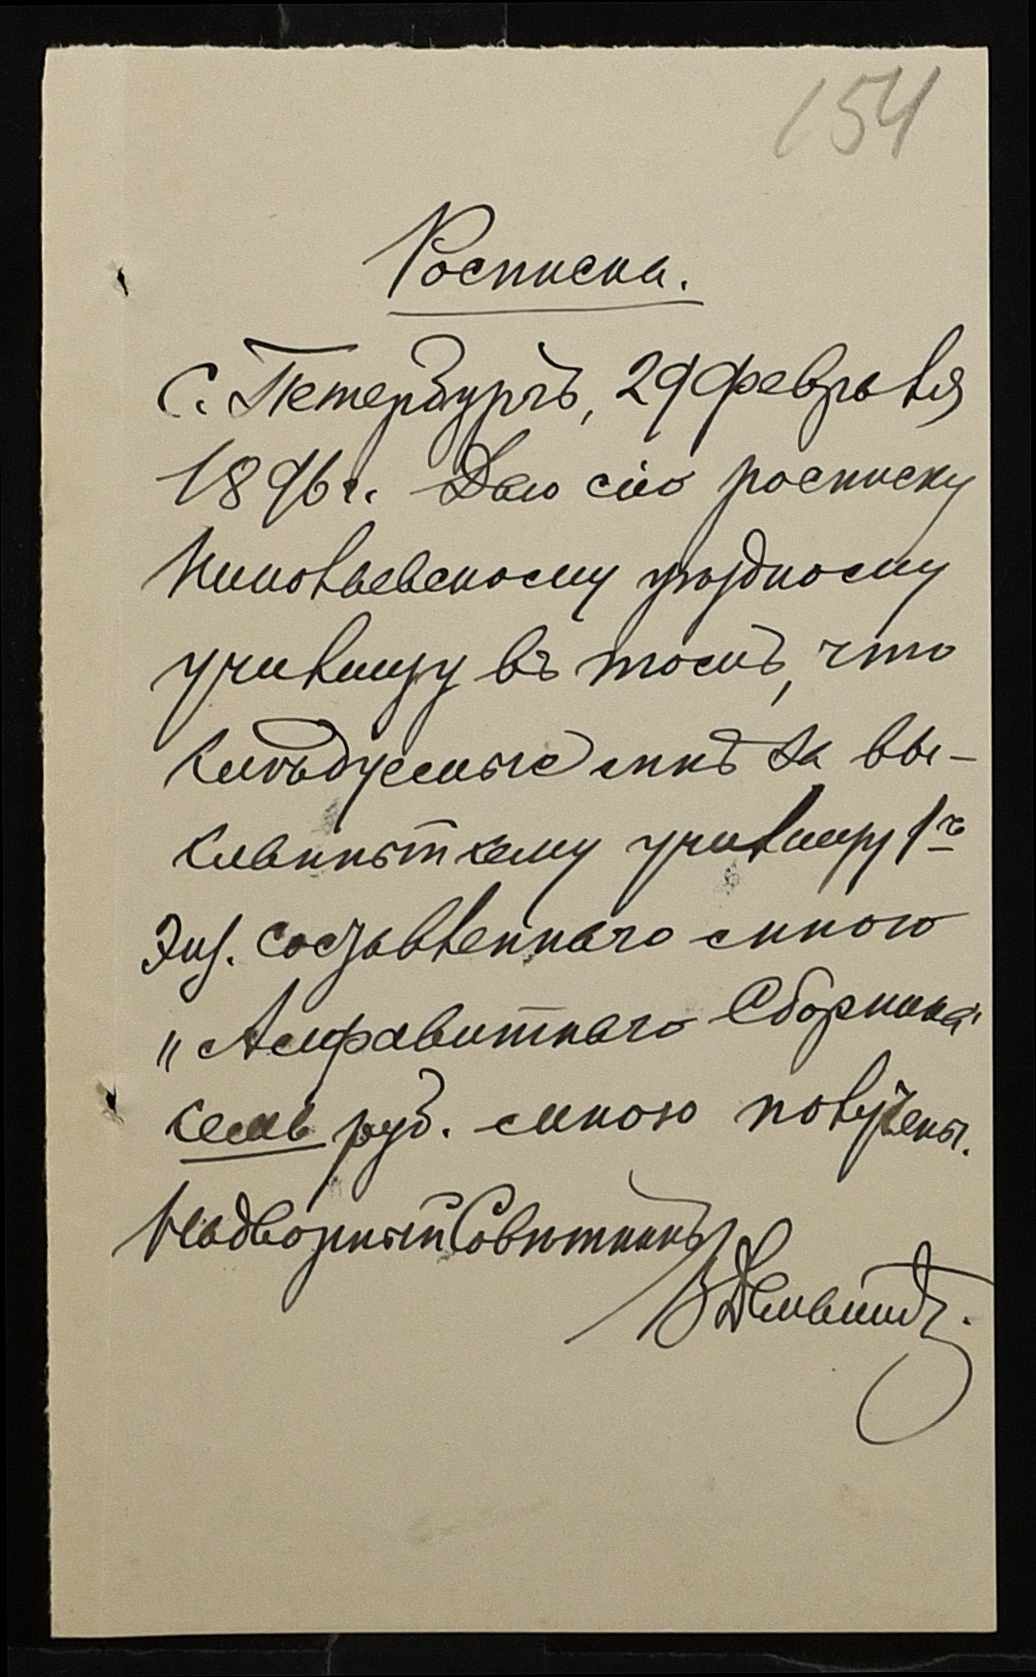 154
Росписка.
С. Петербургъ, 29 февраля
1896 г. Даю сію росписку
уѣздному
училищу въ томъ, что
слѣдуемые мнѣ за вы-
сланный сему училищу 1ъ
Экз. составленнаго мною
„Алфавитнаго Сборника"
семь руб. мною получены.
Надворный Совѣтникъ